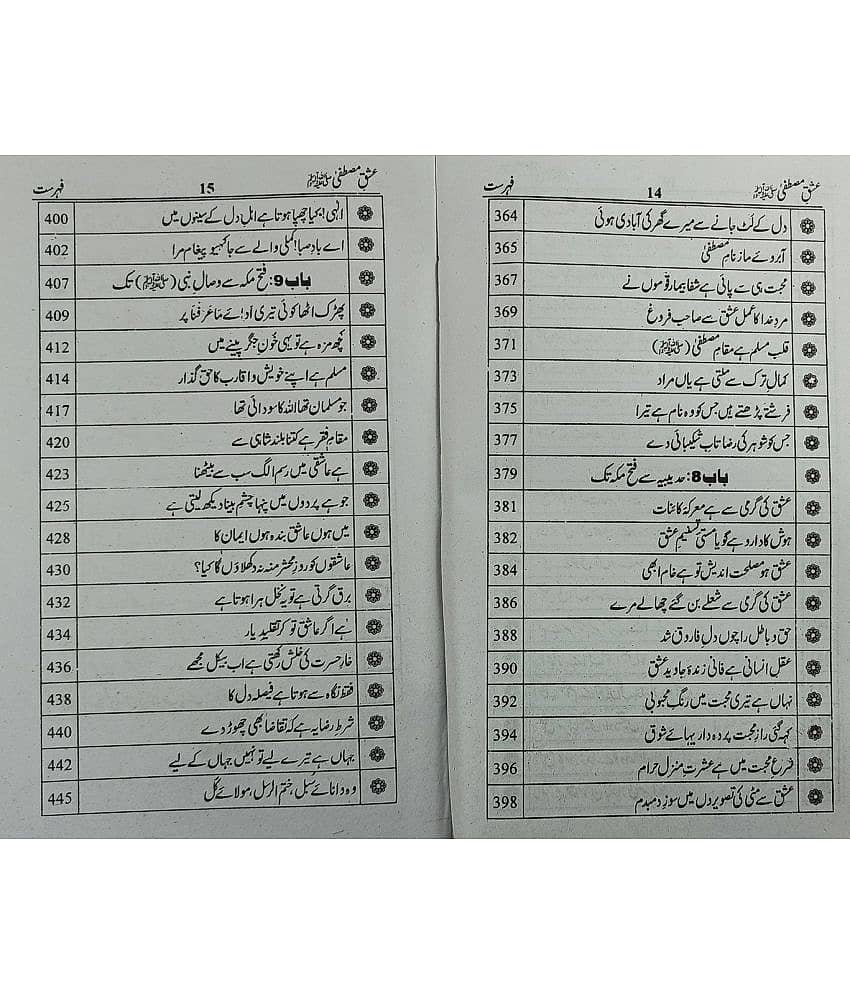 عشقِ مصطفیٰ ﷺ 14 فہرست
دل کے لٹ جانے سے میرے گھر کی آبادی ہوئی 364
آبروئے ما ز نامِ مصطفیٰ 365
محبت ہی سے پائی ہے شفا بیمار قوموں نے 367
مردِ خدا کا عمل عشق سے صاحب فروغ 369
قلب مسلم ہے مقامِ مصطفیٰ (ﷺ) 371
کمالِ ترک سے ملتی ہے یاں مراد 373
فرشتے پڑھتے ہیں جس کو وہ نام ہے تیرا 375
جس کو شوہر کی رضا تاب شکیبائی دے 377
باب 8: حدیبیہ سے فتح مکہ تک 379
عشق کی گرمی سے ہے معرکۂ کائنات 381
ہوش کا دارو ہے گویا مستیٔ تسنیمِ عشق 382
عشق ہو مصلحت اندیش تو ہے خام ابھی 384
عشق کی گرمی سے شعلے بن گئے چھالے مرے 386
حق و باطل را چوں دلِ فاروق شد 388
عقلِ انسانی ہے فانی زندۂ جاوید عشق 390
نہاں ہے تیری محبت میں رنگِ محبوبی 392
کہہ گئی رازِ محبت پردہ دار یہائے شوق 394
شرعِ محبت میں ہے عشرتِ منزل حرام 396
عشق سے مٹی کی تصویر دل میں سوز دمبدم 398
عشقِ مصطفیٰ ﷺ 15 فہرست
الٰہی! کیا چھپا ہوتا ہے اہلِ دل کے سینوں میں 400
اے بادِ صبا! کملی والے سے جا کہیو پیغام مرا 402
باب 9: فتح مکہ سے وصالِ نبی (ﷺ) تک 407
پھڑک اٹھا کوئی تیری ادائے مَا عَرَفْنَا پر 409
کچھ مزہ ہے تو یہی خُونِ جگر پینے میں 412
مسلم ہے اپنے خویش و اقارب کا حق گذار 414
جو مسلمان تھا اللہ کا سودائی تھا 417
مقامِ فقر ہے کتنا بلند شاہی سے 420
ہے عاشقی میں رسم الگ سب سے بیٹھنا 423
جو ہے پردوں میں پنہا چشمِ بینا دیکھ لیتی ہے 425
میں ہوں عاشق بندہ ہوں ایمان کا 428
عاشقوں کو روزِ محشر منہ نہ دکھلاؤں گا کیا؟ 430
برق گرتی ہے تو یہ نخل ہرا ہوتا ہے 432
ہے اگر عاشق تو کر تقلیدِ یار 434
خارِ حسرت کی خلش رکھتی ہے اب بیکل مجھے 436
فقط نگاہ سے ہوتا ہے فیصلہ دل کا 438
شرط رضا یہ ہے کہ تقاضا بھی چھوڑ دے 440
جہاں ہے تیرے لیے تو نہیں جہاں کے لیے 442
وہ دانائے سُبل، ختم الرسل، مولائے کُل 445